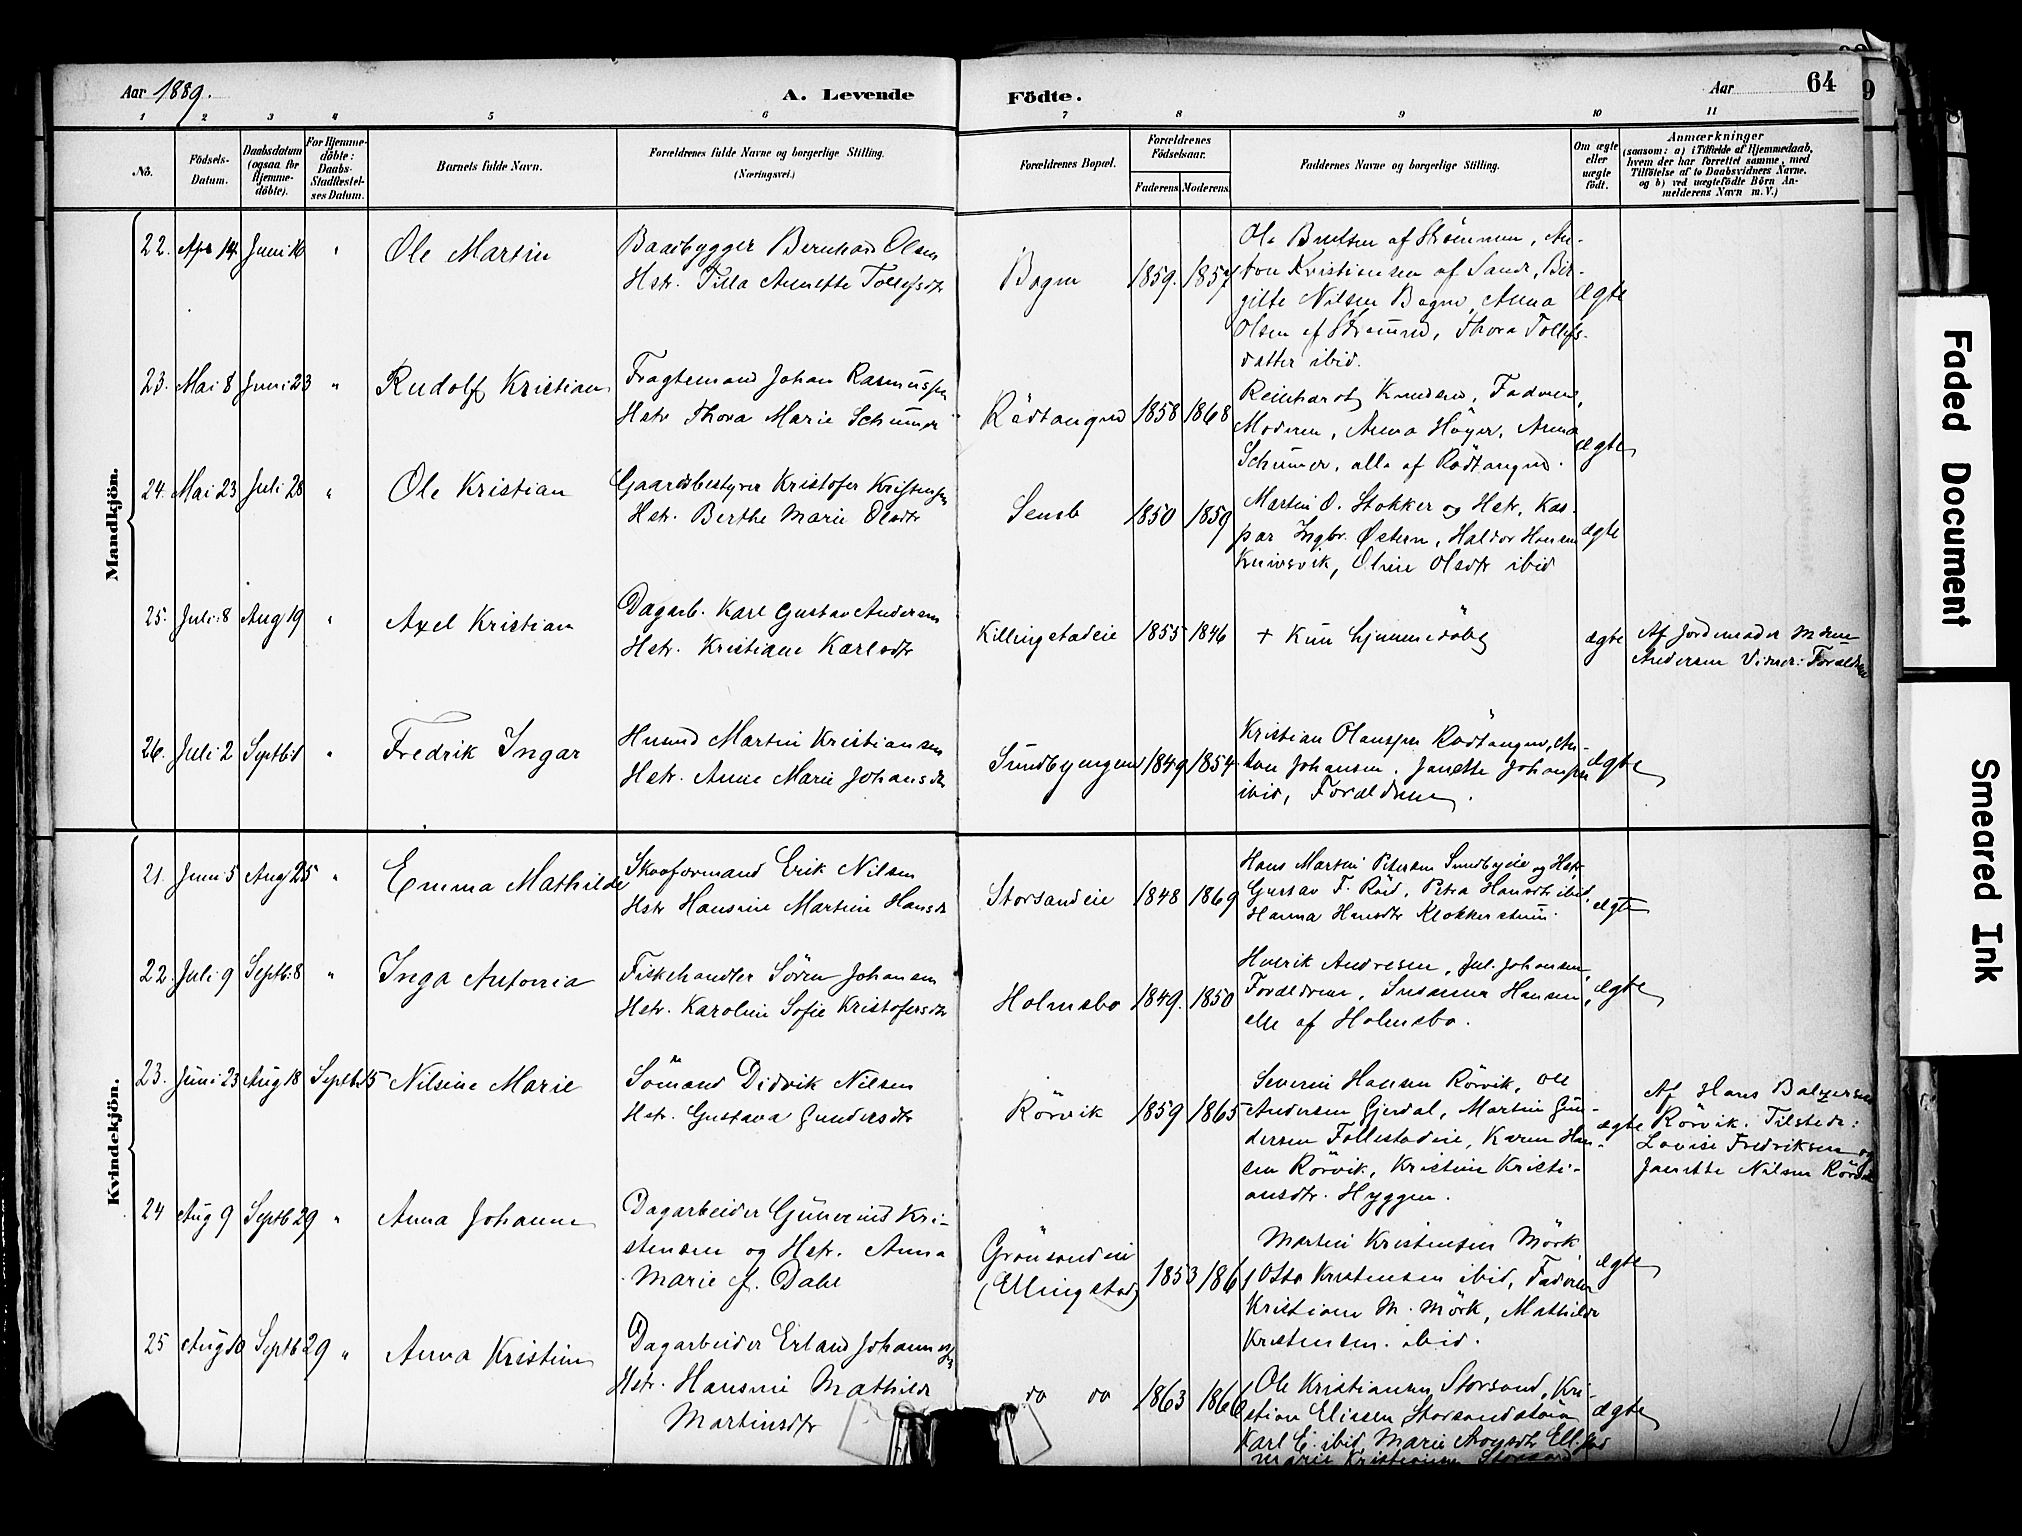 Aar 1889.
A. Levende
Födte.
Aar
64
9
1 2 3 4 5 6 7 8 9 10 11
No.
Födsels-
Datum.
Daabsdatum
(ogsaa for
Hjemme-
döbte).
For Hjemme-
döbte:
Daabs-
Stadfæstel-
ses Datum.
Barnets fulde Navn.
Forældrenes fulde Navne og borgerlige Stilling.
(Næringsvei.)
Forældrenes Bopæl.
Forældrenes
Födselsaar.
Faderens. Moderens.
Faddernes Navne og borgerlige Stilling.
Om ægte
eller
uægte
födt.
Anmærkninger
(saasom: a) i Tilfælde af Hjemmedaab,
hvem der har forrettet samme, med
Tilföielse af to Daabsvidners Navne.
og b) ved uægtefödte Börn An-
melderens Navn m. V.)
Mandkjön.
22. Apr 14. Juni 16 " Ole Martin
Baadbygger Bernhard Olsen
Hstr. Tilla Annette Tollefsdtr
Bogen 1859. 1857
Ole Bentsen af Strömmen, An-
ton Kristiansen af Sand, Bir-
gitte Nilsen Bogen, Anna
Olsen af Strömmen, Thora Tollefs-
datter ibid.
ægte
23. Mai 8 Juni 23 " Rudolf Kristian
Fragtemand Johan Rasmussen
Hstr Thora Marie Schumer
Rödtangen 1858 1868
Reinhardt Knudsen, Faderen,
Moderen, Anna Höyer, Anna
Schumer, alle af Rödtangen.
ægte
24. Mai 23 Juli 28 " Ole Kristian
Gaardbestyrer Kristofer Kristensen
Hstr. Berthe Marie Olsdtr
1850 1859
Martin O. Stokker og Hstr. Kas-
par Ingbr. Østern, Haldor Hansen
Knivsvik, Oline Olsdtr ibid
ægte
25. Juli 8 Aug 19 " Axel Kristian
Dagarb. Karl Gustav Andersen
Hstr. Kristiane Karlsdtr
Killingstadeie 1855 1846
+ Kun hjemmedöbt
ægte
Af Jordemoder
Andersen Vidner: Forældrene
26. Juli 2 Septb 1 " Fredrik Ingar
Husmd Martin Kristiansen
Hstr. Anne Marie Johansdtr
Sundbyengen 1849 1854
Kristian Olaussen Rödtangen, An-
ton Johansen, Janette Johansen
ibid, Forældrene.
ægte
Kvindekjön.
21. Juni 5 Aug 25 " Emma Mathilde
Skovformand Erik Nilsen
Hstr Hansine Martine Hansdtr
Storsandeie 1848 1869
Hans Martin Petersen Sundbyeie og Hstr
Gustav F. Röed, Petra Hansdtr ibid,
Hanna Hansdtr Klokkerstuen.
ægte
22. Juli 9 Septb. 8 " Inga Antonia
Fiskehandler Sören Johansen
Hstr. Karoline Sofie Kristofersdtr
Holmsbo 1849. 1850
Henrik Andresen, Jul. Johansen,
Forældrene, Susanna Hansen,
alle af Holmsbo.
ægte
23. Juni 23 Aug 18 Septb 15 Nilsine Marie
Sömand Didrik Nilsen
Hstr. Gustava Gundersdtr
Rörvik 1859 1865
Severin Hansen Rörvik, Ole
Andersen Gjerdal, Martin Gun-
dersen Follestadeie, Karen Han-
sen Rörvik, Kristine Kristi-
ansdtr. Hyggen.
ægte
Af Hans Balzersen
Rörvik. Tilstede:
Lovise Fredriksen og
Janette Nilsen Rörvik
24 Aug 9 Septb 29 " Anna Johanne
Dagarbeider Gunerius Kri-
stensen og Hstr. Anna
Marie f. Dahl
Grönsandeie
(Ellingstad) 1853 1861
Martin Kristensen Mörk,
Otto Kristensen ibid, Faderen
Kristiane M. Mörk, Mathilde
Kristensen. ibid.
ægte
25 Aug 10 Septb 29 " Anna Kristine
Dagarbeider Erland Johannessen
Hstr. Hansine Mathilde
Martinsdtr
do do 1863 1866
Ole Kristiansen Storsand, Kri-
stian Elissen Storsandstöen
Karl E. ibid, Marie Ell.stad
Marie Kristiansen Storsand
ægte
Faded Document
Smeared Ink